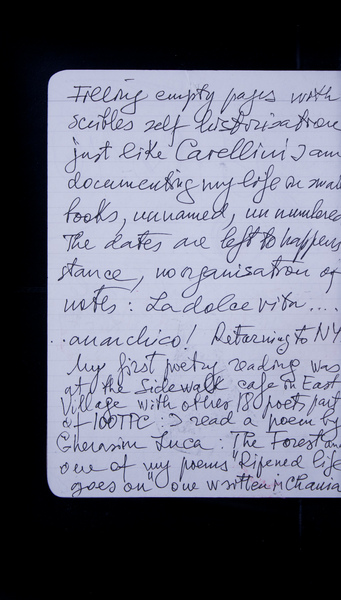 Filling empty pages with
scibles self historisation
just like Carellini I am
documenting my life in small
books, unnamed, un numbered
The dates are left to happen
stance, no organisation of
notes: La dolce vita....
..anarchico! Returning to NY
My first poetry reading was
at the Sidewalk cafe in East
Village with other 180 poets part
of 100TPC: I read a poem by
Gherasim Luca: The Forest and
one of my poems "Ripened life
goes on" one written in Chania